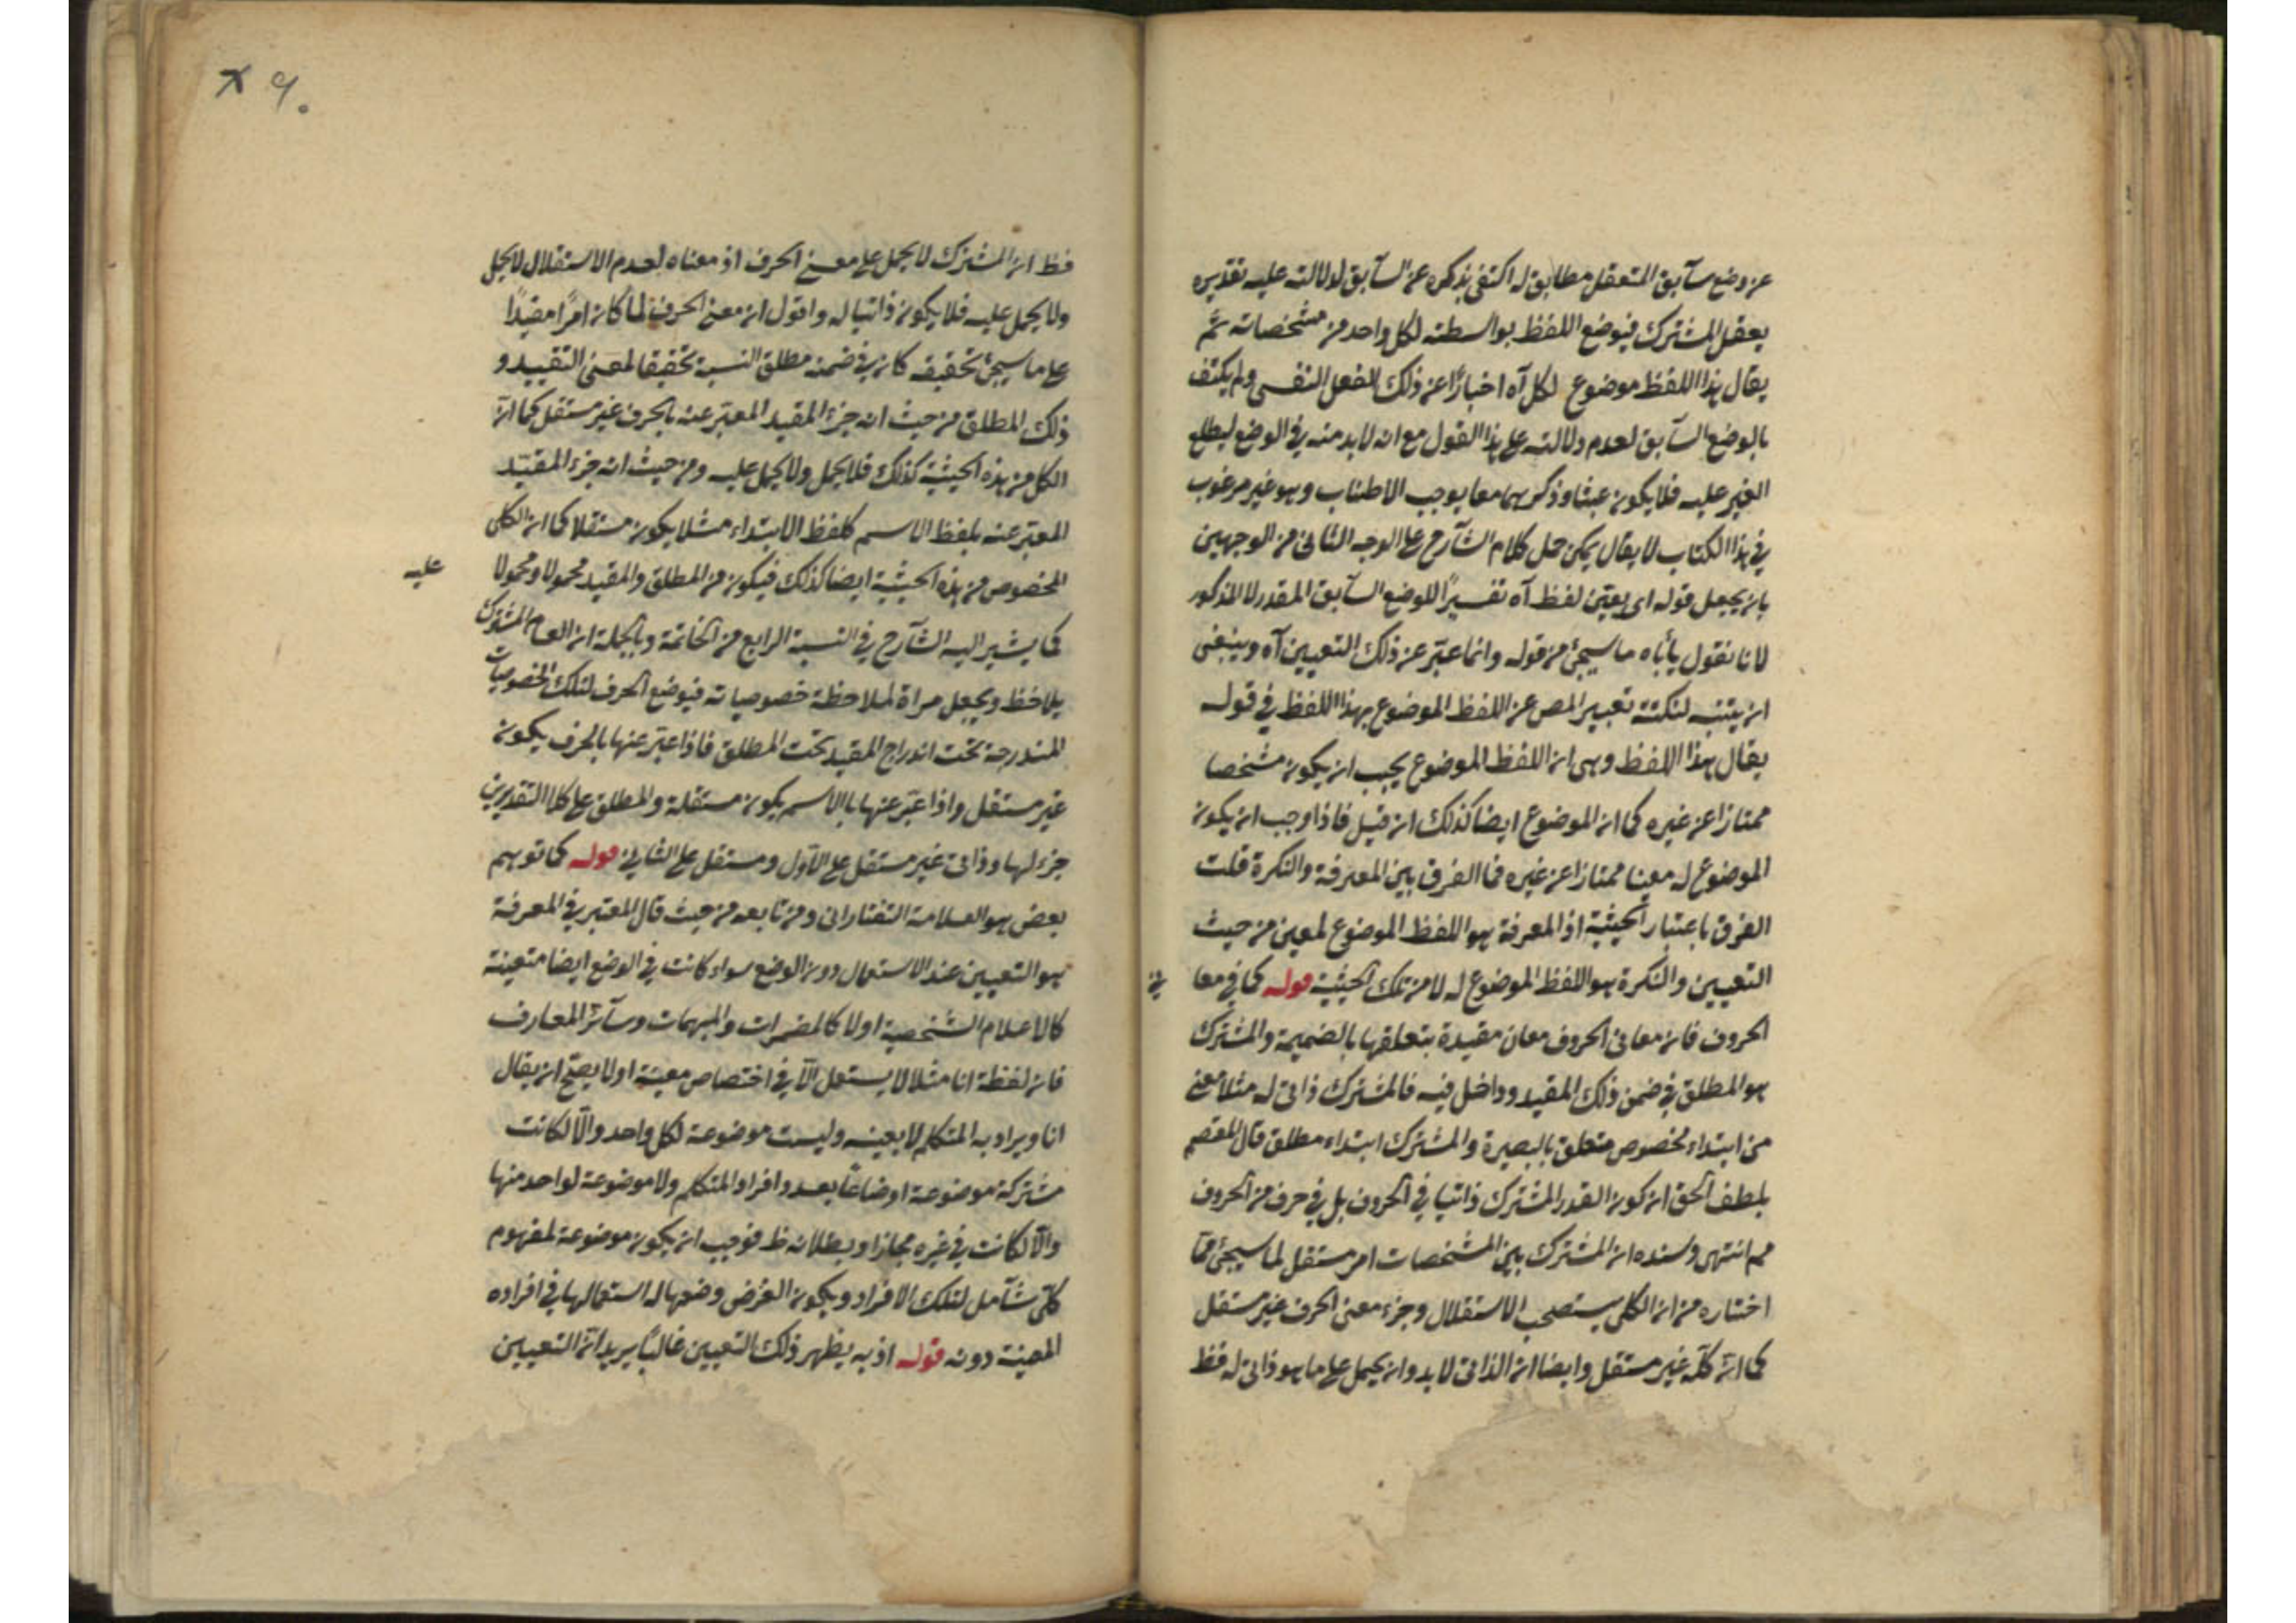 عن وضع سآبق المتعقل مطابق له اكتفى بذكره عن السآبق لدلالته عليه تقديره
يعقل المشترك فيوضع اللفظ بواسطته لكل واحد من مشخصاته ثم
يقال هذا اللفظ موضوع لكل آه اخبارًا عن ذلك الفعل النفسى ولم يكتف
بالوضع السآبق لعدم دلالته على هذا القول مع انه لا بد منه فى الوضع ليطلع
الغير عليه فلا يكون عبثا وذكرهما معا يوجب الاطناب وهو غير مرغوب
فى هذا الكتاب لا يقال يمكن حمل كلام الشآرح على الوجه الثانى من الوجهين
بان يجعل قوله اى يعين لفظ آه تفسيرًا للوضع السآبق المقدر لا المذكور
لانا نقول يأباه ما سيجئ من قوله وانما عبّر عن ذلك التعيين آه وينبغى
ان يتنبه لنكتة تعبير المص عن اللفظ الموضوع بهذا اللفظ فى قوله
يقال هذا اللفظ وهى ان اللفظ الموضوع يجب ان يكون مشخصا
ممتازا عن غيره كما ان الموضوع ايضا كذلك ان قيل فاذا وجب ان يكون
الموضوع له معينا ممتازا عن غيره فما الفرق بين المعرفة والنكرة قلت
الفرق باعتبار الحيثية اذ المعرفة هو اللفظ الموضوع لمعين من حيث
التعيين والنكرة هو اللفظ الموضوع له لا من تلك الحيثية قوله كما فى معا نى
الحروف فان معانى الحروف معان مقيدة بتعلقها بالضميمة والمشترك
هو المطلق فى ضمن ذلك المقيد وداخل فيه فالمشترك ذاتى له مثلا معنى
من ابتداء مخصوص متعلق بالبصرة والمشترك ابتداء مطلق قال المعتصم
بلطف الحق ان كون القدر المشترك ذاتيا فى الحروف بل فى حرف من الحروف
مم انتهى وسنده ان المشترك بين المشخصات امر مستقل لما سيجئ مما
اختاره من ان الكلى يستصحب الاستقلال وجزء معنى الحرف غير مستقل
كما انّ كلّه غير مستقل وايضا ان الذاتى لا بد وان يحمل على ما هو ذاتى له فظ
٩٠
فظ ان المشترك لا يحمل على معنى الحرف اذ معناه لعدم الاستقلال لا يحمل
ولا يحمل عليه فلا يكون ذاتيا له واقول ان معنى الحرف لما كان امرًا مقيدًا
على ما سيجئ تحقيقه كان فى ضمنه مطلق النسبة تحقيقا لمعنى التقييد و
ذلك المطلق من حيث انه جزء المقيد المعتبر عنه بالحرف غير مستقل كما انّ
الكل من هذه الحيثية كذلك فلا يحمل ولا يحمل عليه ومن حيث انه جزء المقيّد
المعتبر عنه بلفظ الاسم كلفظ الابتداء مثلا يكون مستقلا كما ان الكلى
المخصوص من هذه الحيثية ايضا كذلك فيكون من المطلق والمقيد محمولا ومحمولا عليه
كما يشير اليه الشآرح فى النسبة الرابع من الخاتمة وبالجملة ان العام المشترك
يلاحظ ويجعل مرآة لملاحظة خصوصياته فيوضع الحرف لتلك الخصوصيات
المندرجة تحت اندراج المقيد تحت المطلق فاذا عبّر عنها بالحرف يكون
غير مستقل واذا عبّر عنها بالاسم يكون مستقلة والمطلق على كلا التقديرين
جزء لها وذاتى غير مستقل على الاول ومستقل على الثانى قوله كما توهم
بعض هو العلامة التفتازانى ومن تابعه من حيث قال المعتبر فى المعرفة
هو التعيين عند الاستعمال دون الوضع سواء كانت فى الوضع ايضا متعينة
كالاعلام الشخصية اولا كالمضمرات والمبهمات وسآئر المعارف
فان لفظة انا مثلا لا يستعمل الّا فى اختصاص معينة اولا يصحّ ان يقال
انا ويراد به المتكلم لا بعينه وليست موضوعة لكل واحد والّا لكانت
مشتركة موضوعة اوضاعًا بعدد افراد المتكلم ولا موضوعة لواحد منها
والّا لكانت فى غيره مجازا وبطلانه ظ فوجب ان يكون موضوعة لمفهوم
كلّى شآمل لتلك الافراد ويكون الغرض وضعها له استعمالها فى افراده
المعينة دونه قوله اذ به يظهر ذلك التعيين غالبًا يريد انّ التعيين